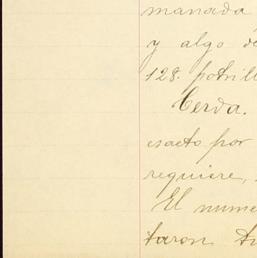 manada
y algo de
128. potrill
Cerda.
esacto por
requiere,
El nume
taron tu